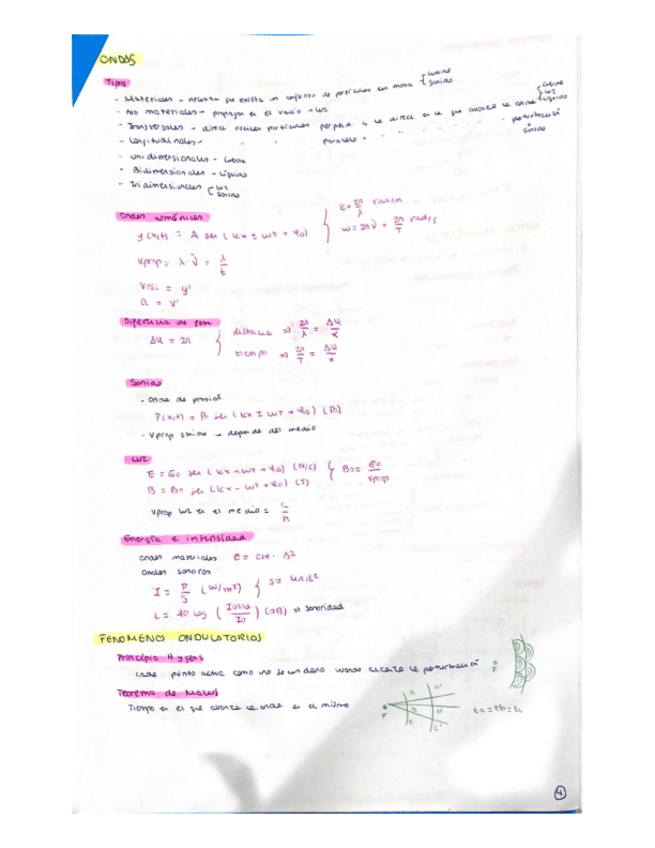 ONDAS
Tipos
- Materiales → necesita que exista un conjunto de partículas con masa { cuerda
sonido
- No materiales → propagan en el vacío → luz
- Transversales → direcc oscilan partículas perpend a la direcc en la que avanza la onda { cuerda
luz
líquido
- Longitudinales → " " paralelo " " " " " perturbación
sonido
- Unidimensionales → cuerda
- Bidimensionales → líquido
- Tridimensionales { luz
sonido
Ondas armónicas
y(x,t) = A sen (kx ± wt + φ0) { k = 2π/λ rad/m
w = 2πν = 2π/T rad/s
Vprop = λ·ν = λ/t
Vosc = y'
a = v'
Diferencia de fase
Δφ = 2π { distancia => 2π/λ = Δφ/x
tiempo => 2π/T = Δφ/x
Sonido
- Onda de presión
P(x,t) = P0 sen (kx ± wt + φ0) (Pa)
- Vprop sonido → depende del medio
Luz
E = E0 sen (kx - wt + φ0) (N/C) { B0 = E0/Vprop
B = B0 sen (kx - wt + φ0) (T)
Vprop luz en el medio = c/n
Energía e intensidad
ondas materiales E = cte · A²
Ondas sonoras
I = P/S (W/m²) { S = 4πd²
L = 10 log ( /I0) (dB) => sonoridad
FENÓMENOS ONDULATORIOS
Principio Huygens
cada punto actúa como uno secundario cuando alcanza la perturbación
F
Teorema de Malus
Tiempo en el que avanza la onda es el mismo
F a b c a' b' c' ta = tb = tc
4